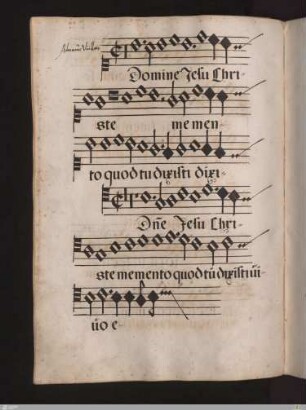 Domine Jesu Chri-
ste me men
to quod tu dixisti dixi-
Dñe Jesu Chri
ste memento quod tu dixisti ui
uo e